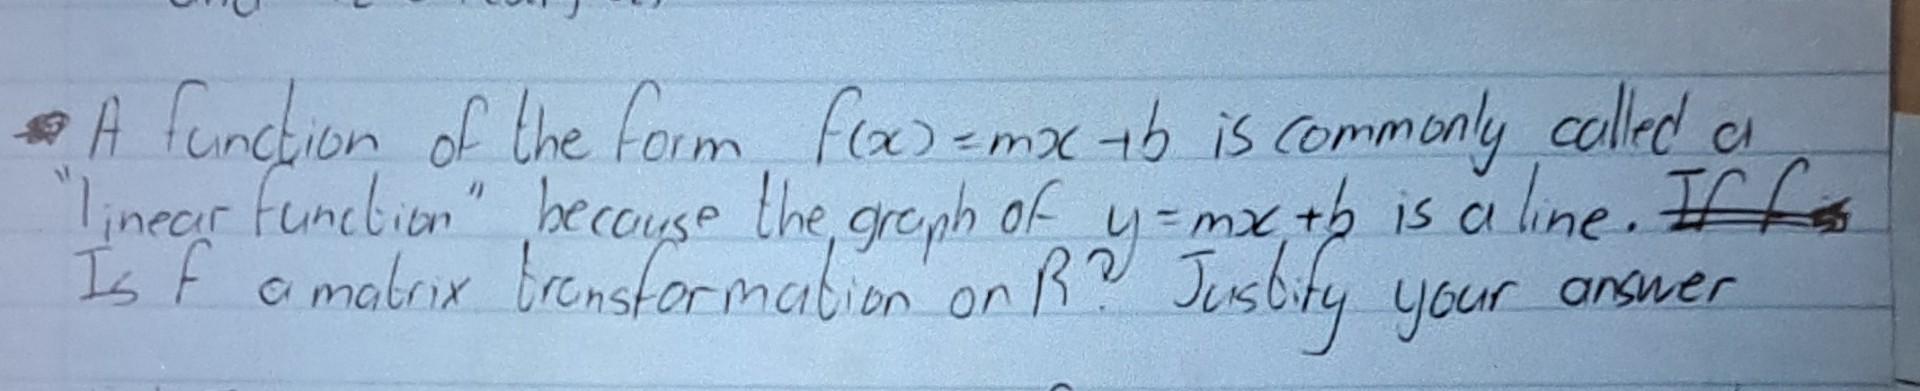 A function of the form f(x) = mx + b is commonly called a
"linear function" because the graph of y = mx + b is a line. If f is
Is f a matrix transformation on R? Justify your answer